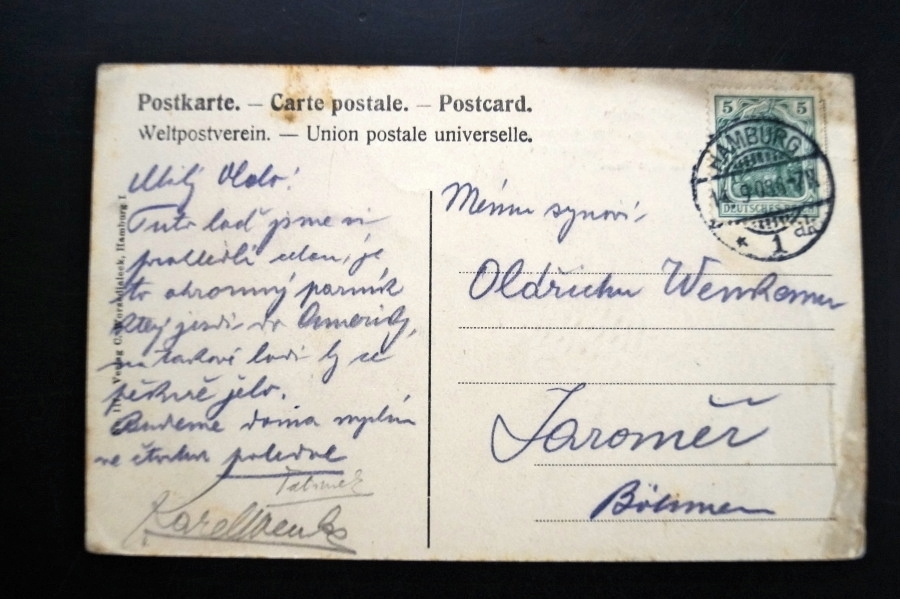 Postkarte. – Carte postale. – Postcard.
Weltpostverein. — Union postale universelle.
5 5
HAMBURG
DEUTSCHES
* 1
Milý Oldo!
Tuto loď jsme si
prohlédli celou, je
to ohromný parník
který jezdí do Ameriky,
na takové lodi by se
pěkně jelo.
Budeme doma myslím
ve čtvrtek poledne
Tatínek
Karel
Verlag Hamburg 1
Mému synovi
Oldřichu
Jaroměř
Böhmen